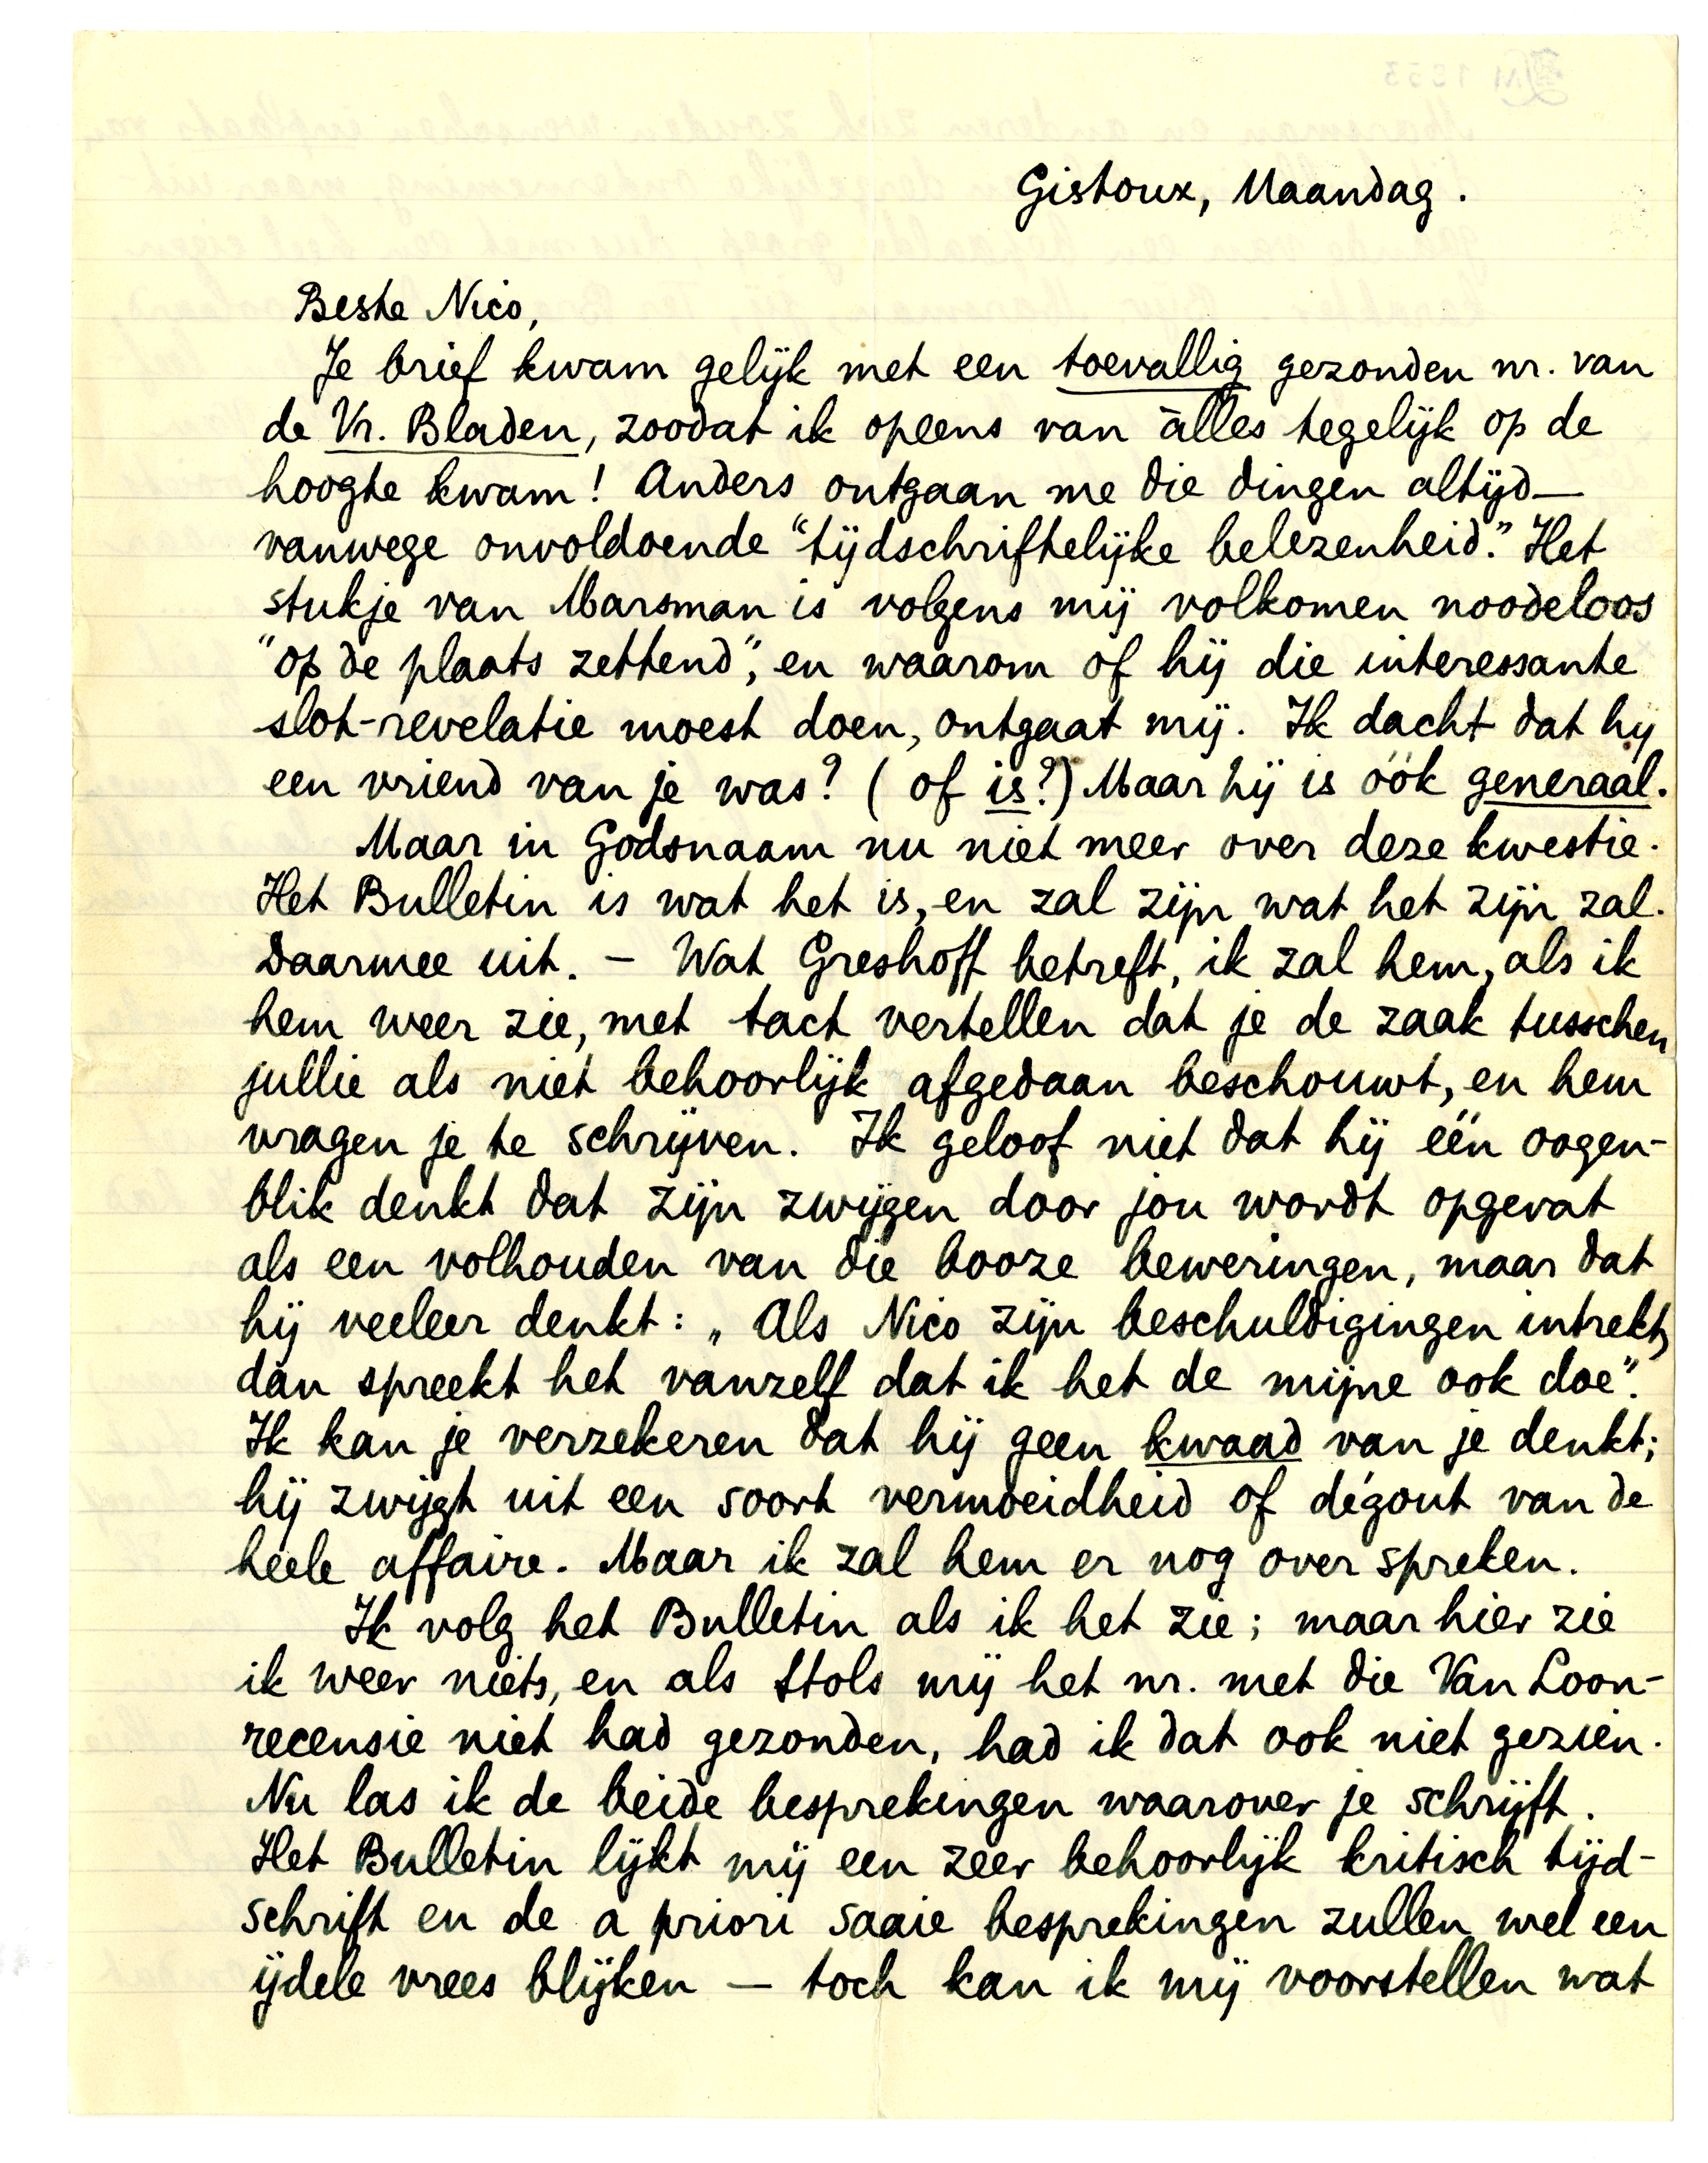 Gistoux, Maandag.
Beste Nico,
Je brief kwam gelijk met een toevallig gezonden nr. van
de Vr. Bladen, zoodat ik opeens van àlles tegelijk op de
hoogte kwam! Anders ontgaan me die dingen altijd —
vanwege onvoldoende "tijdschriftelijke belezenheid." Het
stukje van Marsman is volgens mij volkomen noodeloos
"op de plaats zettend", en waarom of hij die interessante
slot-revelatie moest doen, ontgaat mij. Ik dacht dat hij
een vriend van je was? (of is?) Maar hij is óók generaal.
Maar in Godsnaam nu niet meer over deze kwestie.
Het Bulletin is wat het is, en zal zijn wat het zijn zal.
Daarmee uit. — Wat Greshoff betreft, ik zal hem, als ik
hem weer zie, met tact vertellen dat je de zaak tusschen
jullie als niet behoorlijk afgedaan beschouwt, en hem
vragen je te schrijven. Ik geloof niet dat hij één oogen-
blik denkt dat zijn zwijgen door jou wordt opgevat
als een volhouden van die booze beweringen, maar dat
hij veeleer denkt: „Als Nico zijn beschuldigingen intrekt,
dan spreekt het vanzelf dat ik het de mijne ook doe".
Ik kan je verzekeren dat hij geen kwaad van je denkt;
hij zwijgt uit een soort vermoeidheid of dégout van de
heele affaire. Maar ik zal hem er nog over spreken.
Ik volg het Bulletin als ik het zie; maar hier zie
ik weer niets, en als Stols mij het nr. met die Van Loon-
recensie niet had gezonden, had ik dat ook niet gezien.
Nu las ik de beide besprekingen waarover je schrijft.
Het Bulletin lijkt mij een zeer behoorlijk kritisch tijd-
schrift en de a priori saaie besprekingen zullen wel een
ijdele vrees blijken — toch kan ik mij voorstellen wat